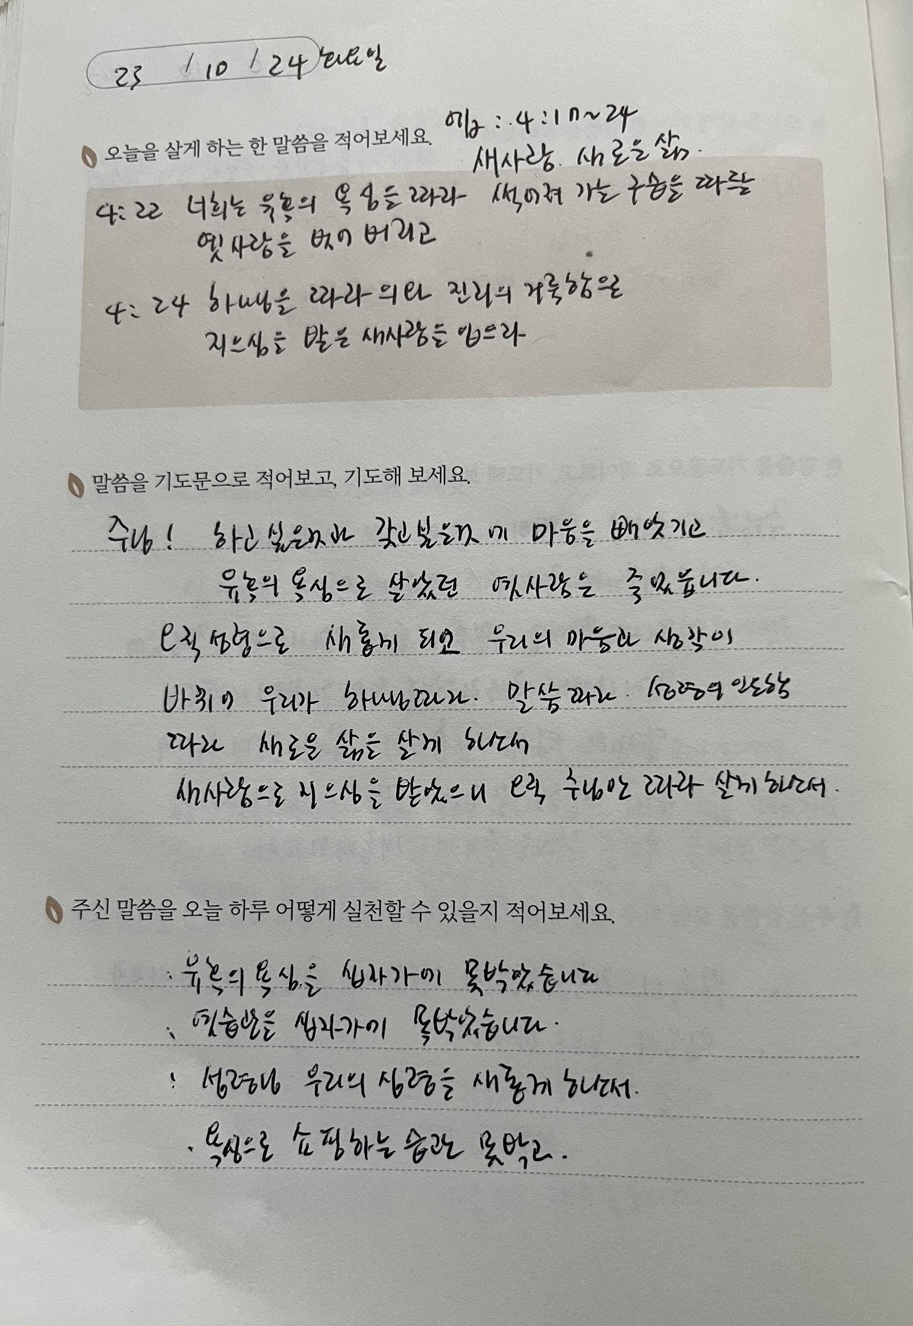 23 / 10 / 24 화요일
오늘을 살게 하는 한 말씀을 적어보세요.
엡 : 4:17~24
새사람. 새로운 삶.
4:22 너희는 유혹의 욕심을 따라 썩어져 가는 구습을 따르는
옛사람을 벗어 버리고
4:24 하나님을 따라 의와 진리의 거룩함으로
지으심을 받은 새사람을 입으라
말씀을 기도문으로 적어보고, 기도해 보세요.
주님! 하고싶은것과 갖고싶은것에 마음을 빼앗기고
유혹의 욕심으로 살았던 옛사람은 죽었습니다.
오직 성령으로 새롭게 되고 우리의 마음과 생각이
바뀌어 우리가 하나님따라. 말씀따라. 성령의 인도함
따라 새로운 삶을 살게 하소서
새사람으로 지으심을 받았으니 오직 주님만 따라 살게 하소서.
주신 말씀을 오늘 하루 어떻게 실천할 수 있을지 적어보세요.
: 유혹의 욕심을 십자가에 못박았습니다
: 옛습관을 십자가에 못박았습니다.
: 성령님 우리의 심령을 새롭게 하소서.
. 욕심으로 쇼핑하는 습관 못박고.